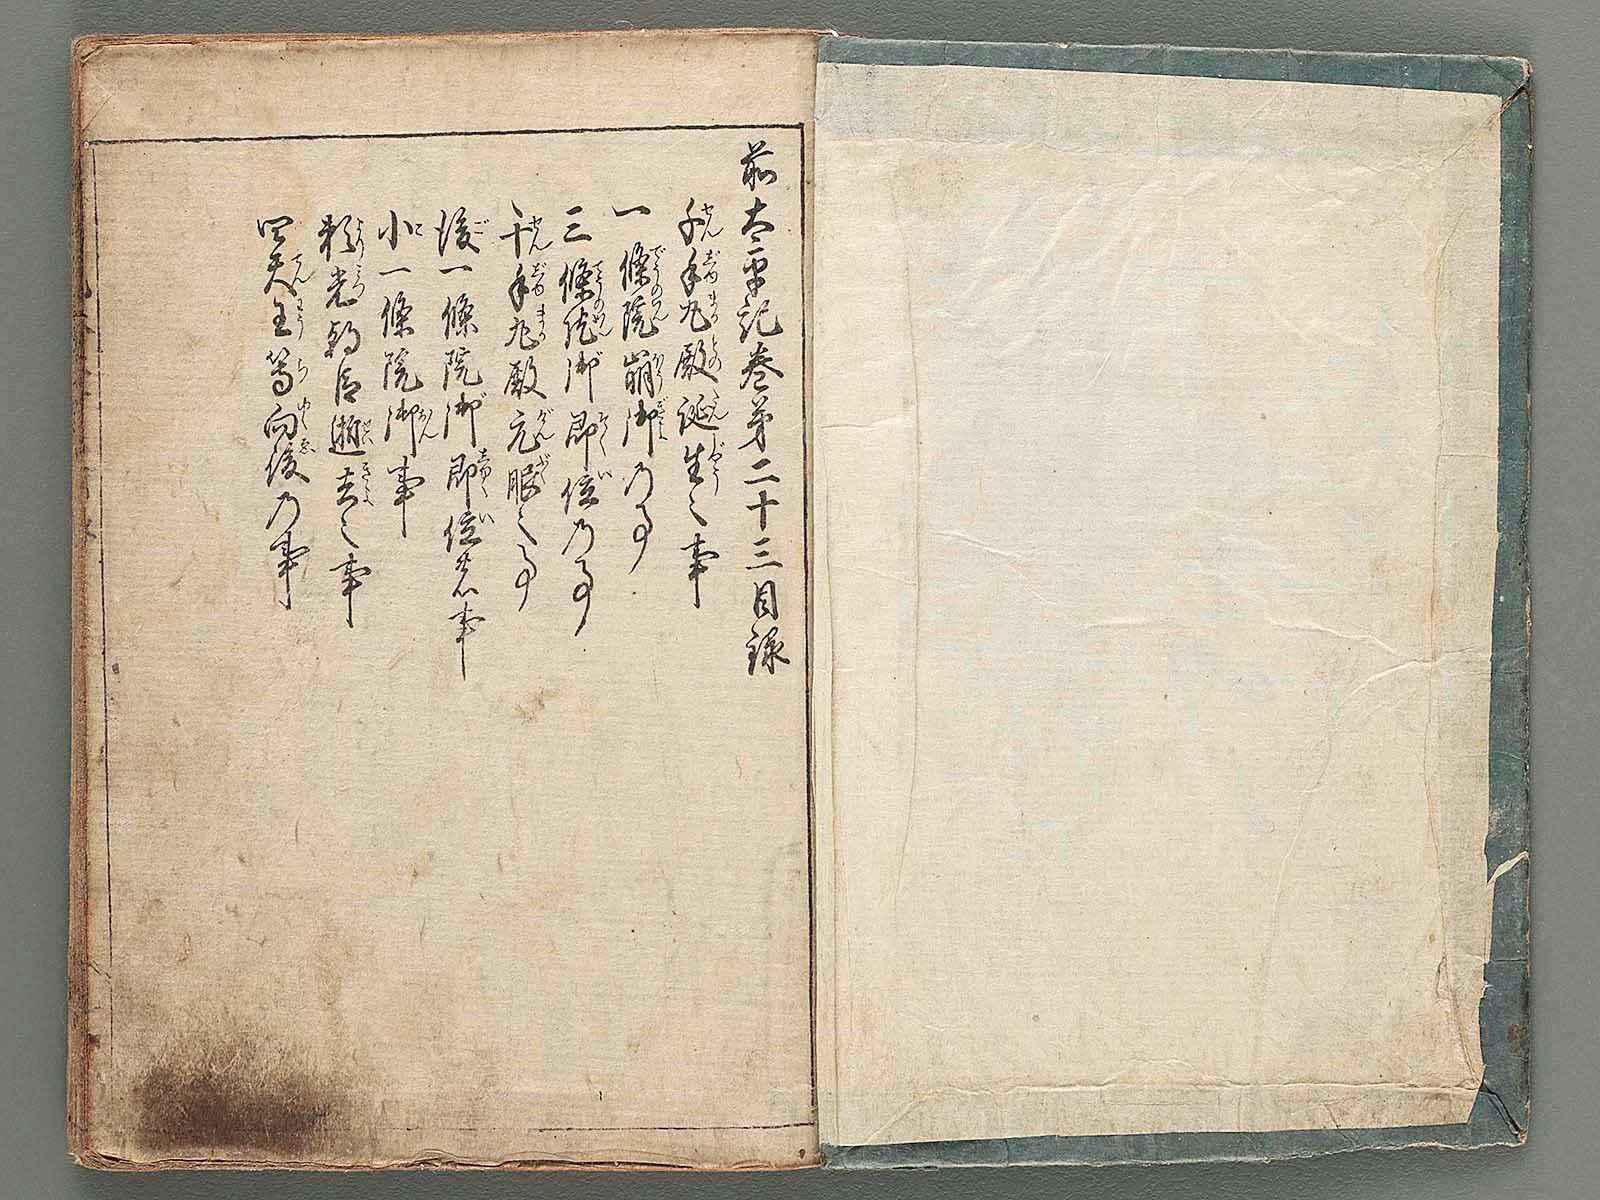 前太平記巻第二十三目録
千手丸殿誕生之事
一條院崩御乃事
三條院御即位乃事
千手丸殿元服之事
後一條院御即位乃事
小一條院御事
頼光朝臣逝去之事
四天王等向後乃事